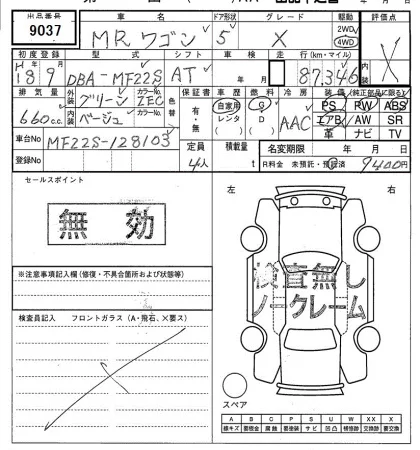 出品番号 車名 ドア形状 グレード 駆動 評価点
9037 MRワゴン 5 X 2WD 4WD X
内装
初度登録 型式 シフト 車検 走行(km・マイル)
H18 9 DBA-MF22S AT 年 月 87,346
排気量 外装 カラーNo. 色替 保証書 車歴 燃料 冷房 装備(純正部品に限る)
660cc グリーン ZEC 有・無 自家用 レンタ G D AAC PS PW ABS
内装 ベージュ カラーNo. エアB AW SR
革 ナビ TV
車台No MF22S-128103 定員 積載量 名変期限 年 月 日
登録No 4人 t R料金 未預託・預託済 9400円
セールスポイント
無効
※注意事項記入欄(修復・不具合箇所および状態等)
検査員記入 フロントガラス(A・飛石、X要ス)
左 右
検査無し
ノークレーム
スペア
A B C P S U W X XX
線キズ 面積金 腐蝕 要塗装 サビ 凹凸 補修跡 要交換 交換済